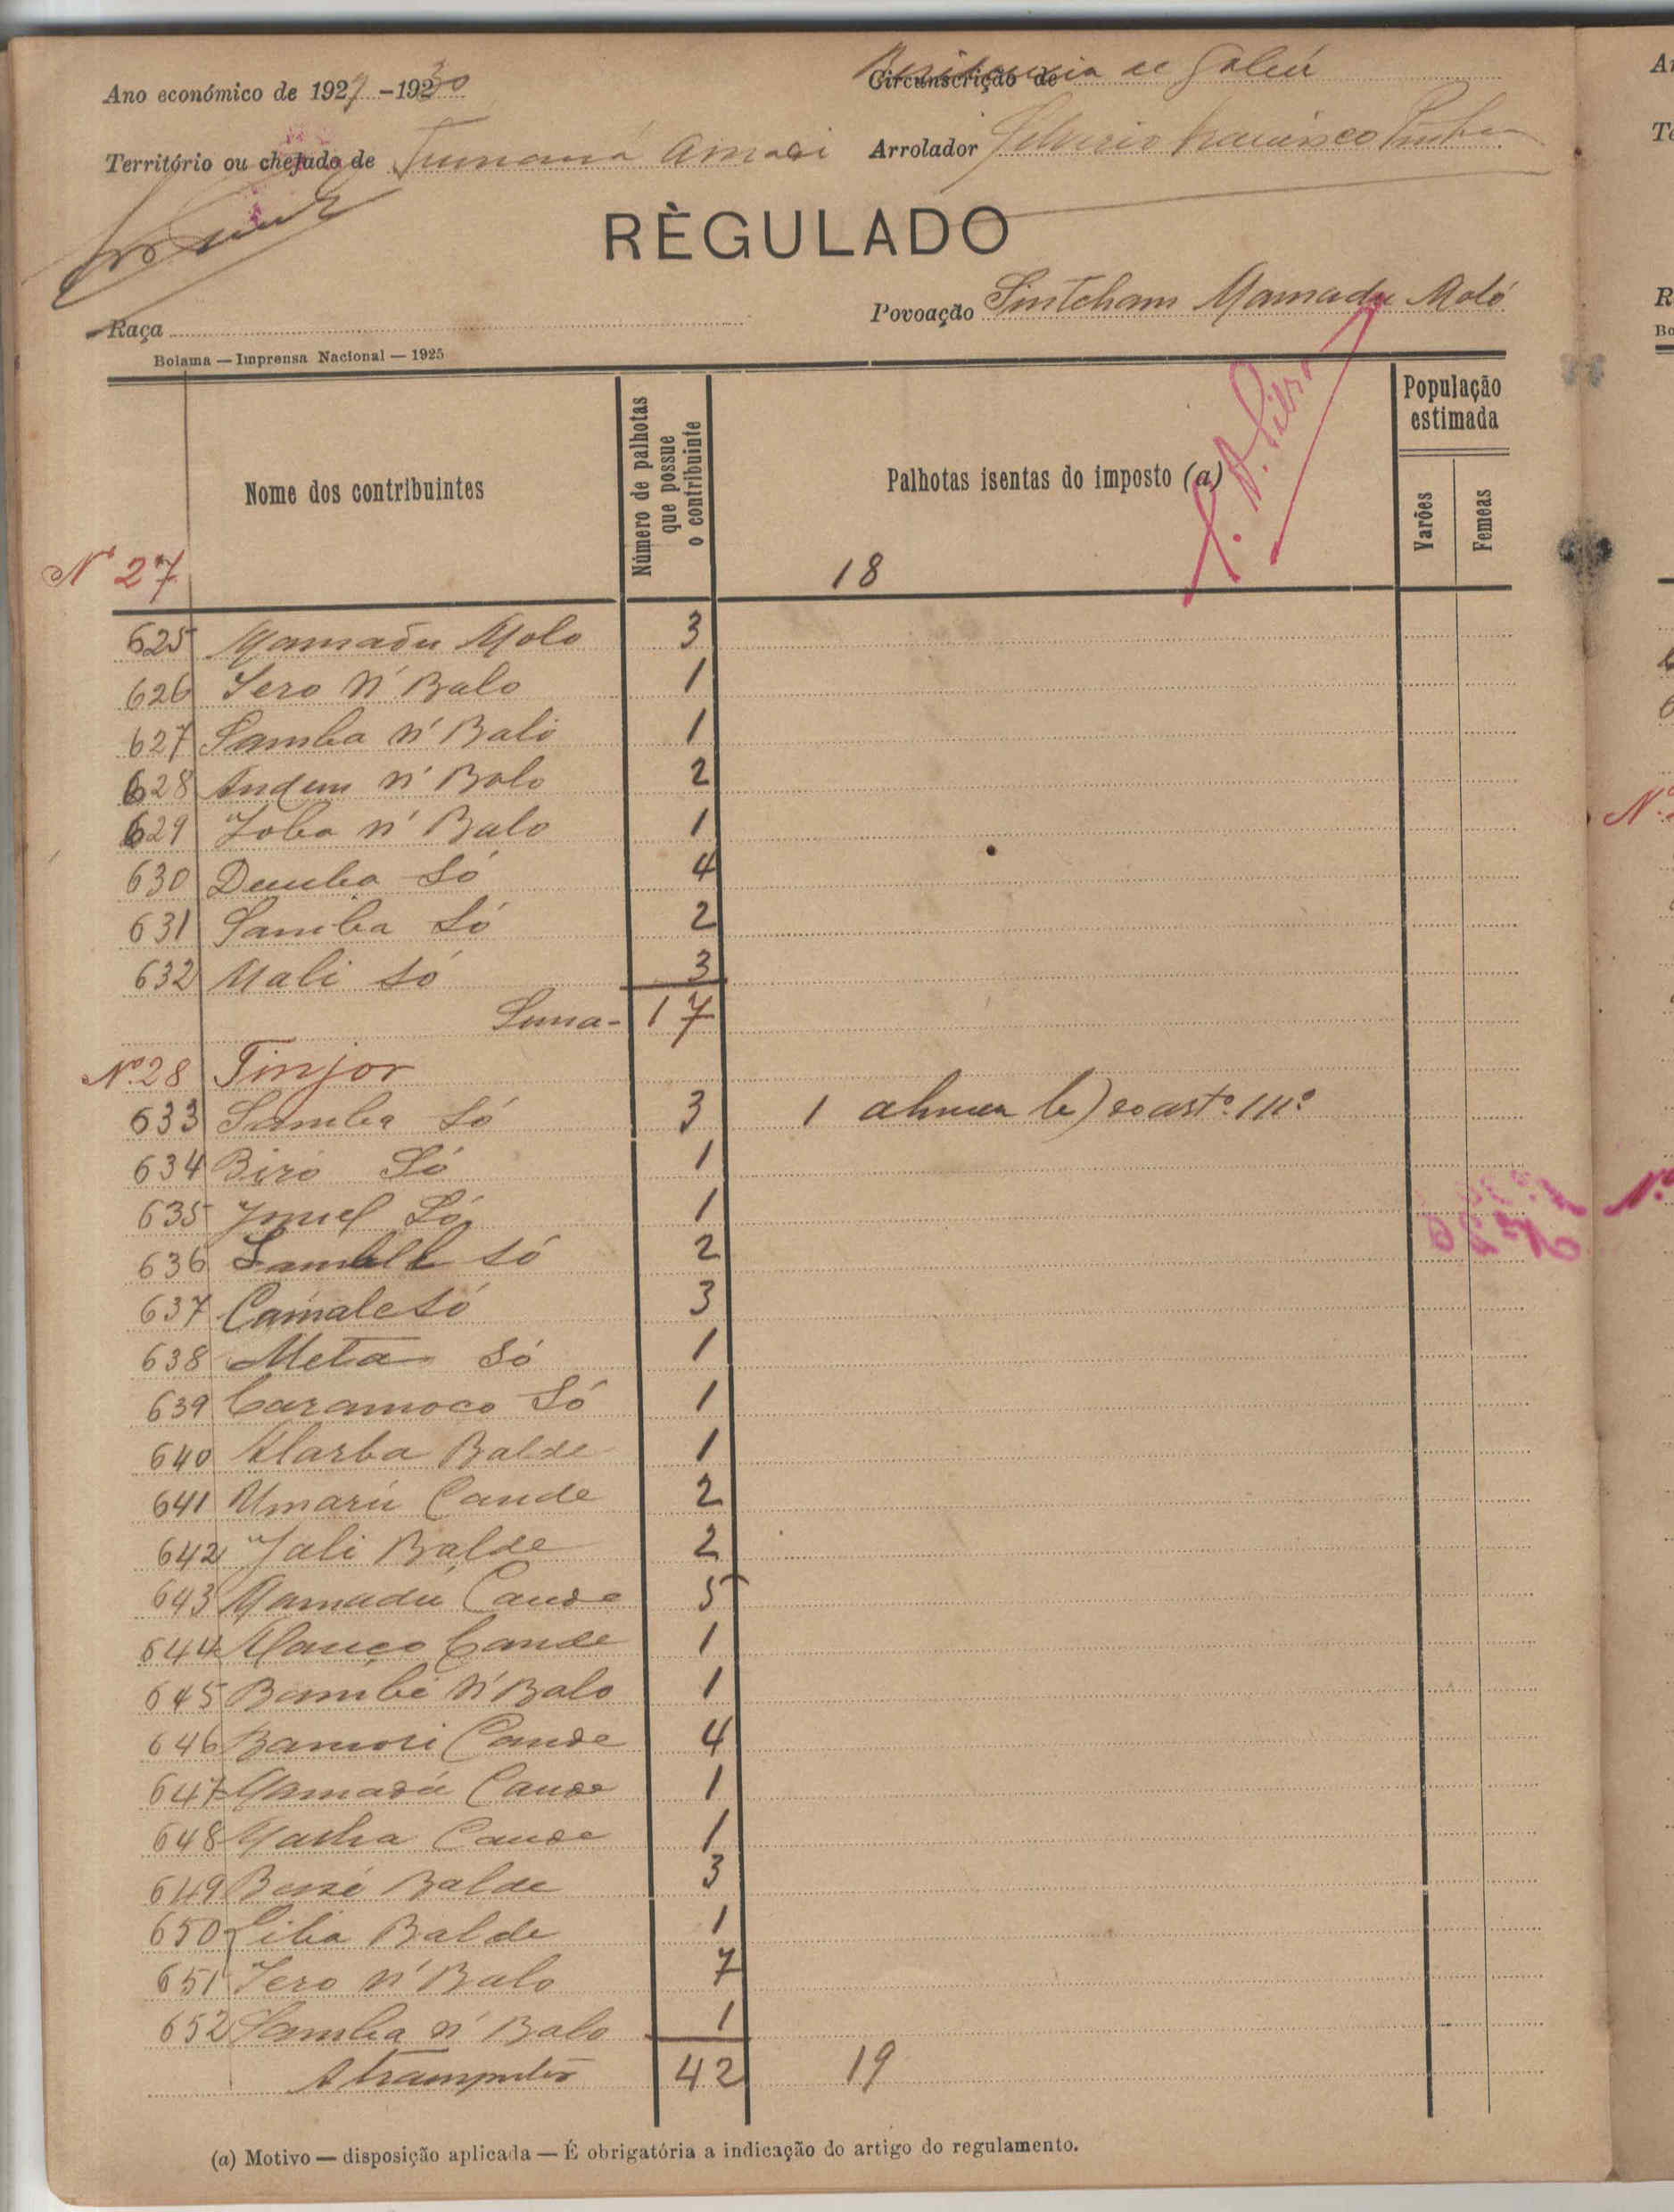 Ano económico de 1929-1930
Circunscrição de
de Gabú
Território ou chefado de Tumaná
Arrolador Francisco
RÈGULADO
Raça
Povoação Sintcham Mamadu Moló
Bolama — Imprensa Nacional — 1925
Nome dos contribuintes
Número de palhotas que possue o contribuinte
Palhotas isentas do imposto (a)
População estimada
Varões
Femeas
Nº 27
18
625 Mamadu Molo 3
626 Iero N' Balo 1
627 Samba N' Balo 1
628 N' Balo 2
629 N' Balo 1
630 Demba Só 4
631 Samba Só 2
632 Mali Só 3
Soma - 17
Nº 28 Tinjor
633 Samba Só 3 1 b) do artº 111º
634 Biro Só 1
635 Só 1
636 Só 2
637 Camale Só 3
638 Meta Só 1
639 Caramoco Só 1
640 Balde 1
641 Umarú Cande 2
642 Balde 2
643 Mamadú Cande 5
644 Cande 1
645 Bambé N' Balo 1
646 Bamori Cande 4
647 Mamadú Cande 1
648 Cande 1
649 Balde 3
650 Balde 1
651 Iero N' Balo 7
652 Samba N' Balo 1
A transportar 42 19
(a) Motivo — disposição aplicada — É obrigatória a indicação do artigo do regulamento.